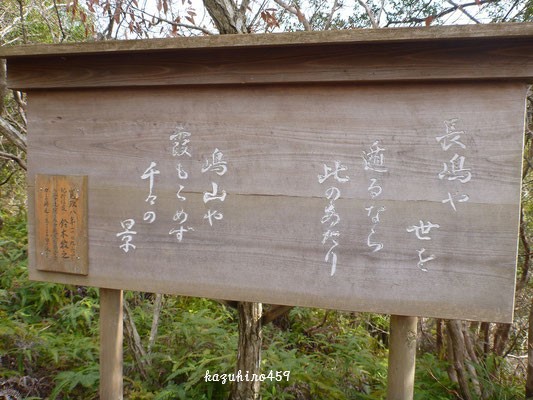 長嶋や
世を
遁るなら
此のあたり
嶋山や
霞もこめず
千々の
景
鈴木敦之
kazuhiro459